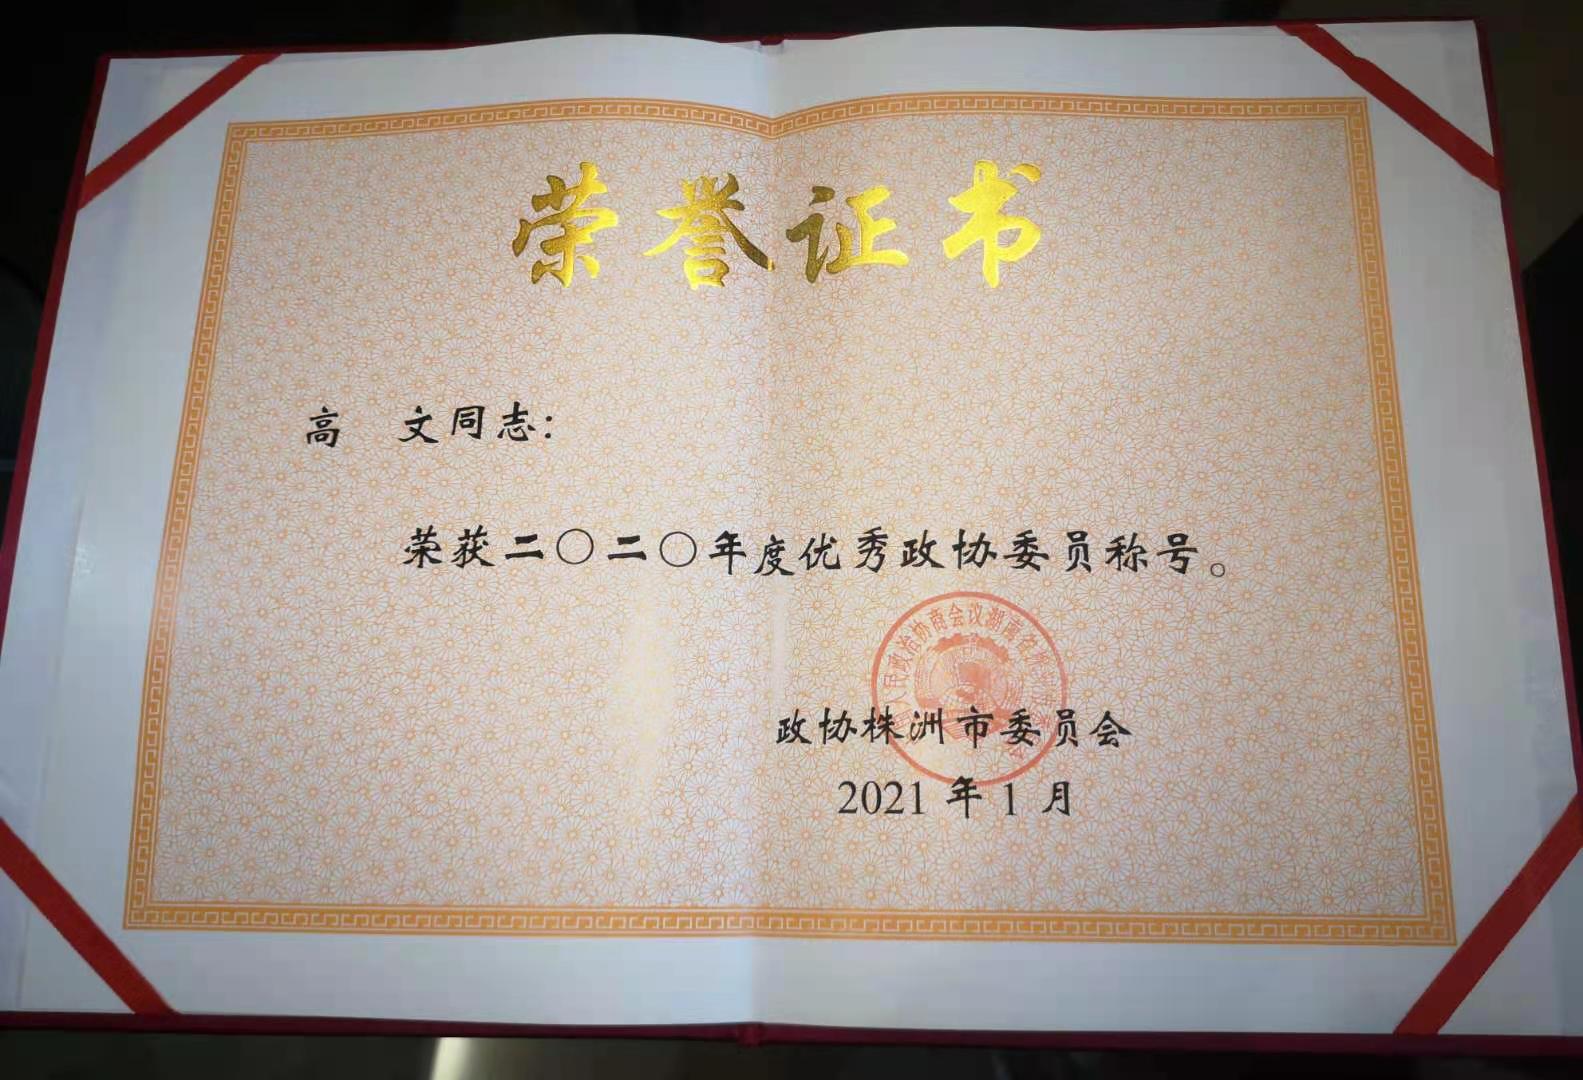 荣誉证书
高 文同志：
荣获二〇二〇年度优秀政协委员称号。
人民政治协商会议湖南省
政协株洲市委员会
2021 年 1 月